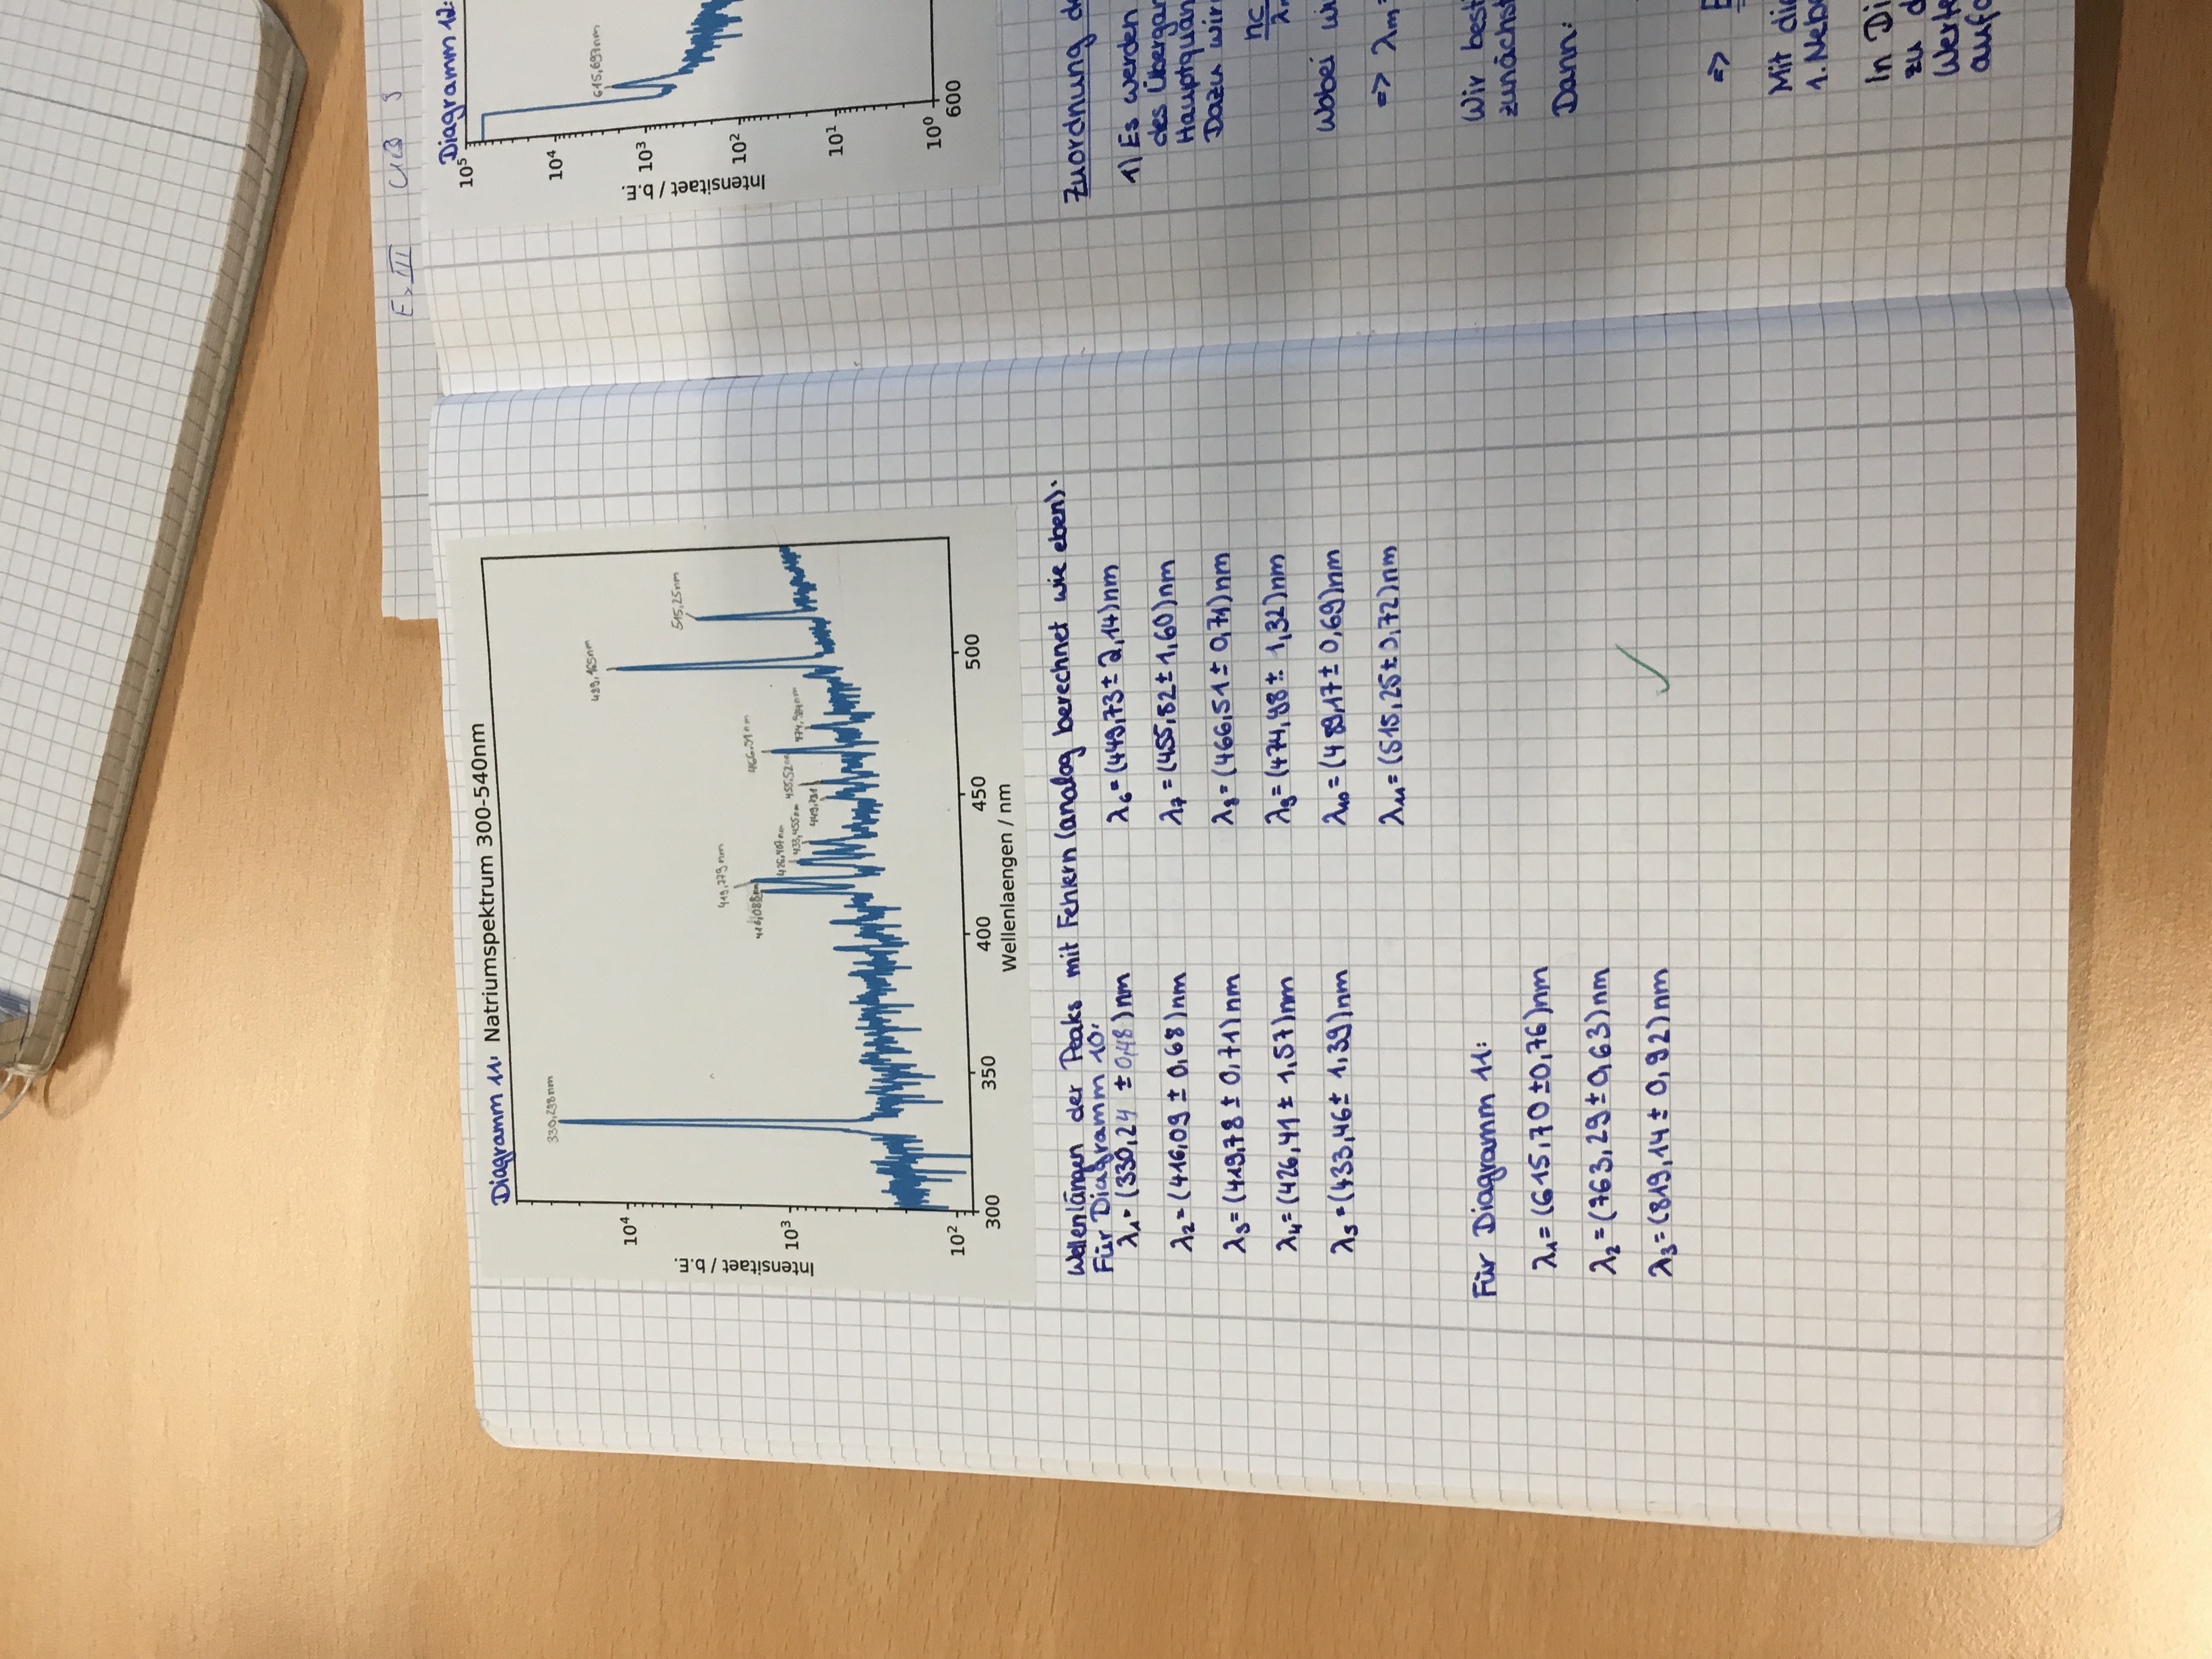 Ex III UB 9
Diagramm 11: Natriumspektrum 300-540nm
330,298nm
489,165nm
515,25nm
419,779nm
416,088nm
426,407nm
433,455nm
449,731
455,52nm
466,51nm
474,984nm
10⁴
10³
10²
Intensitaet / b.E.
300 350 400 450 500
Wellenlaengen / nm
Wellenlängen der Peaks mit Fehlern (analog berechnet wie eben):
Für Diagramm 10:
λ₁= (330,24 ± 0,48)nm
λ₂= (416,09 ± 0,68)nm
λ₃= (419,78 ± 0,71)nm
λ₄= (426,41 ± 1,57)nm
λ₅= (433,46± 1,39)nm
λ₆= (449,73± 2,14)nm
λ₇= (455,82± 1,60)nm
λ₈= (466,51± 0,71)nm
λ₉= (474,98± 1,32)nm
λ₁₀= (489,17± 0,69)nm
λ₁₁= (515,25± 0,72)nm
Für Diagramm 11:
λ₁= (615,70 ±0,76)nm
λ₂= (763,29±0,63)nm
λ₃= (819,14± 0,92)nm
Diagramm 12:
10⁵
10⁴
10³
10²
10¹
10⁰
615,697nm
Intensitaet / b.E.
600
Zuordnung de
1) Es werden
des Übergan
Hauptquan
Dazu wir
hc
λm
Wobei wi
=> λm =
Wir best
zunächst
Dann:
=> E
Mit die
1. Neb
In Di
zu d
Werte
aufg